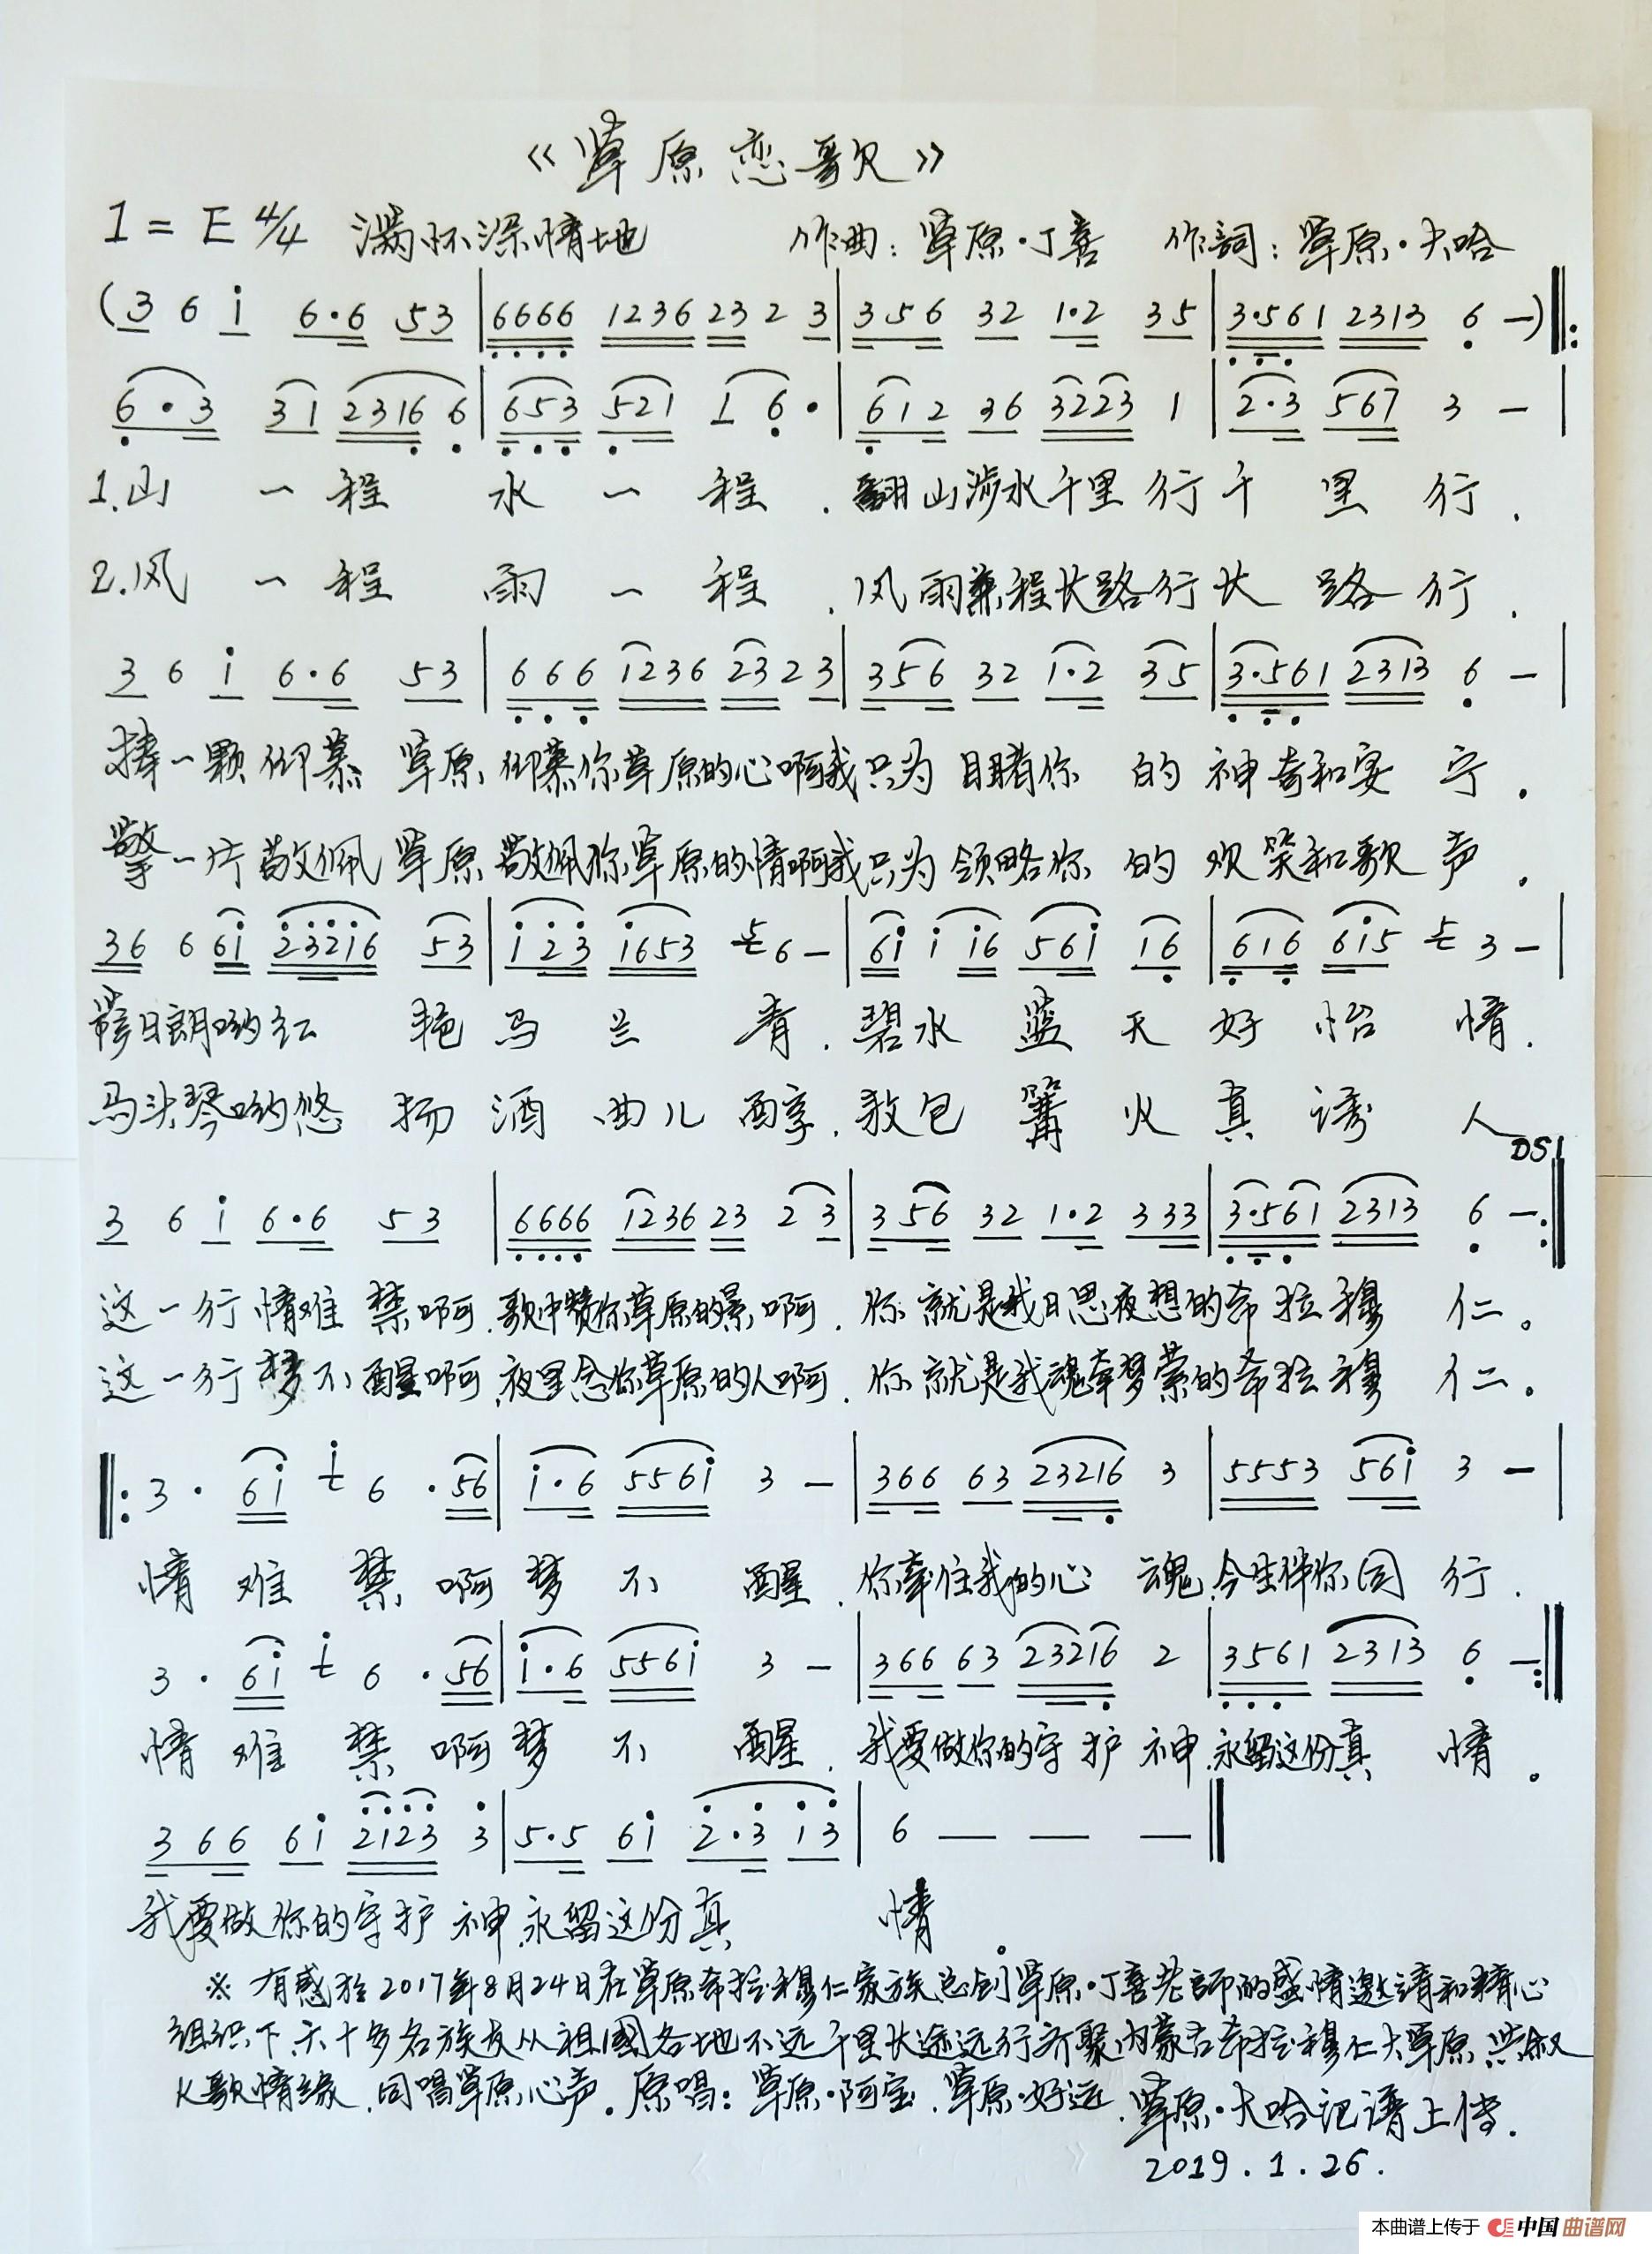 《草原恋歌》
1=E 4/4 满怀深情地 作曲:草原·丁喜 作詞:草原·大哈
(3 6 i 6·6 53|6666 1236 23 2 3|356 32 1·2 35|3·561 2313 6 —)‖:
6·3 31 2316 6|653 521 1 6·|612 36 3223 1|2·3 567 3 —|
1.山 一 程 水 一 程.翻山涉水千里行千里行.
2.风 一 程 雨 一 程.风雨兼程长路行长路行.
3 6 i 6·6 53|666 1236 23 2 3|356 32 1·2 35|3·561 2313 6 —|
捧一颗仰慕 草原,仰慕你草原的心啊我只为目睹你 的 神奇和安 宁.
擎一片敬佩 草原,敬佩你草原的情啊我只为领略你 的 欢笑和歌 声.
36 6 6i 23216 53|i23 i653 5 6 —|6i i i6 56i 16|616 6i5 5 3 —|
日朗哟红 艳 马 兰 青.碧水 蓝 天 好 怡 情.
马头琴哟悠 扬 酒 曲儿 醇.敖包 篝 火 真 诱 人
DS1
3 6 i 6·6 53|6666 1236 23 2 3|356 32 1·2 333|3·561 2313 6 —:‖
这一行情难 禁啊.歌中赞你草原的景啊.你就是我日思夜想的希拉穆 仁。
这一行梦不醒啊.夜里念你草原的人啊.你就是我魂牵梦萦的希拉穆 仁。
‖:3· 6i i 6·56|i·6 556i 3 —|366 63 23216 3|5553 56i 3 —|
情难 禁 啊梦 不 醒.你牵住我的心 魂.今生伴你同 行.
3· 6i i 6·56|i·6 556i 3 —|366 63 23216 2|3561 2313 6 —:‖
情难 禁 啊梦 不 醒.我要做你的守护 神.永留这份真 情。
366 6i 2123 3|5·5 6i 2·3 i3|6 — — —‖
我要做你的守护 神.永留这份真 情。
※有感於2017年8月24日在草原希拉穆仁家族总创草原·丁喜老師的盛情邀请和精心
组织下,六十多名族友从祖國各地不远千里长途远行齐聚内蒙古希拉穆仁大草原,共叙
K歌情缘,同唱草原心声。原唱:草原·阿宝.草原·好运.草原·大哈记谱上传.
2019.1.26.
本曲谱上传于 中国曲谱网